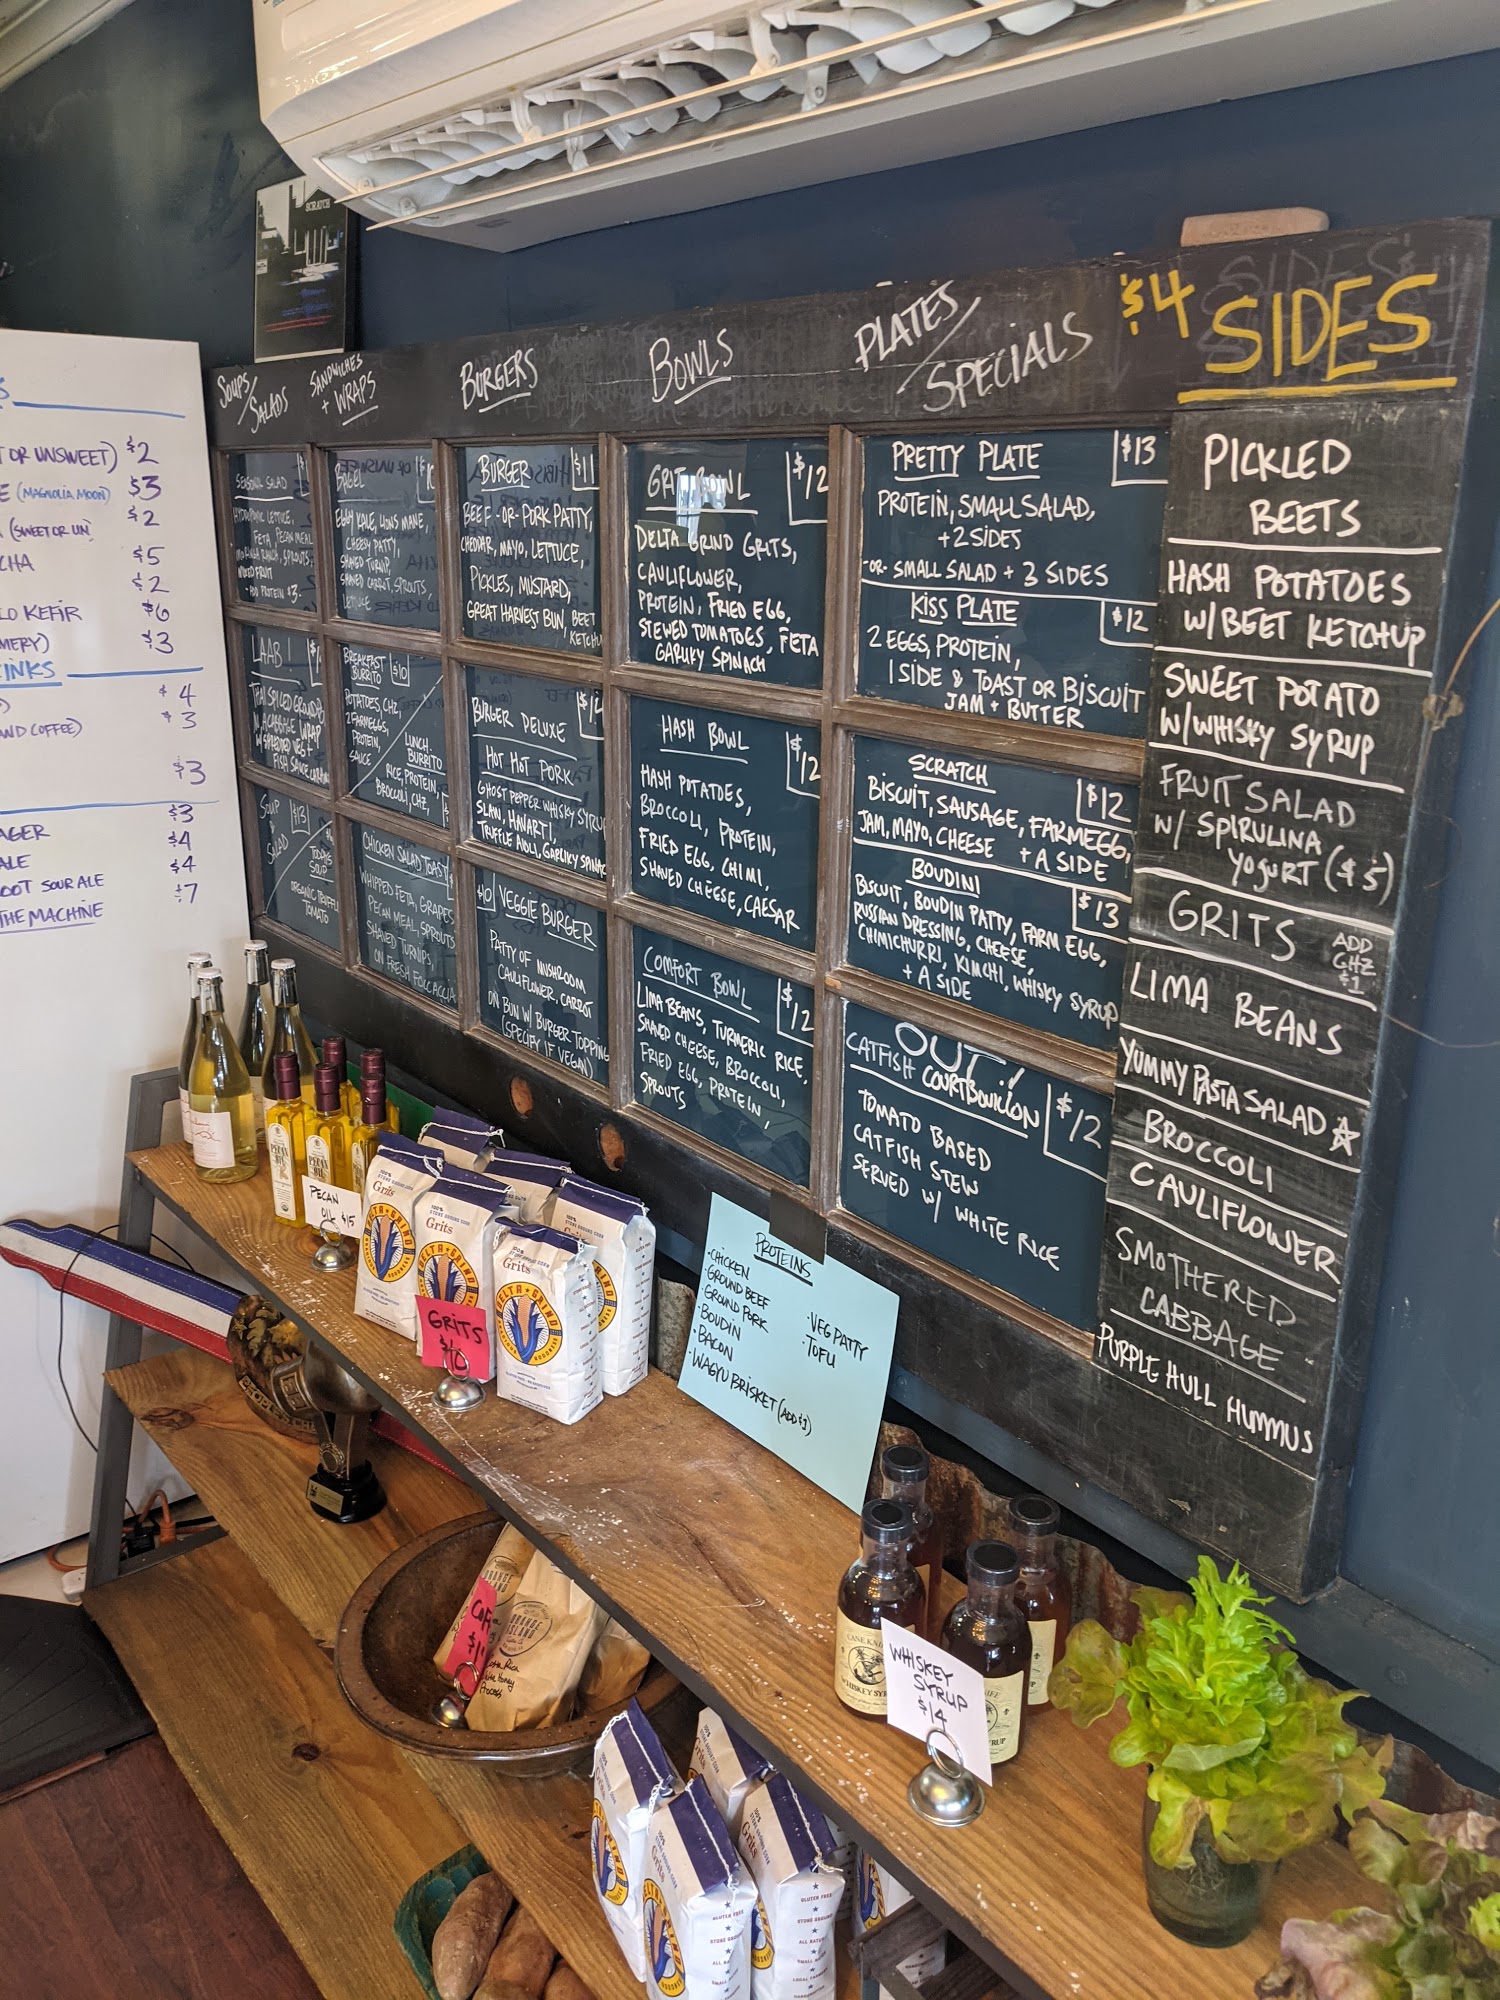 SCRATCH
OR UNSWEET) $2
(MAGNOLIA MOON) $3
(SWEET OR UN) $2
CHA $5
$2
LO KEFIR $6
MERY) $3
INKS
$4
AND COFFEE) $3
$3
$3
AGER $4
ALE $4
OOT SOUR ALE $7
THE MACHINE
SOUPS/
SALADS
SEASONAL SALAD
HYDROPONIC LETTUCE,
FETA, PECAN MEAL
RANCH, SPROUTS
MIXED FRUIT
- ADD PROTEIN $3.
LAAB!
THAI SPICED GROUND
CABBAGE WRAP
W/ SHREDDED VEG +
FISH SAUCE
SOUP $13
&
SALAD
TODAY'S
SOUP
ORGANIC TRUFFLE
TOMATO
SANDWICHES
+ WRAPS
BAGEL
EGGY KALE, LIONS MANE,
CHEESY PATTY,
SHAVED TURNIP,
SHAVED CARROT, SPROUTS,
LETTUCE
BREAKFAST
BURRITO $10
POTATOES, CHZ,
2 FARM EGGS,
PROTEIN,
SAUCE
LUNCH
BURRITO
RICE, PROTEIN,
BROCCOLI, CHZ,
CHICKEN SALAD TOAST
WHIPPED FETA, GRAPES
PECAN MEAL, SPROUTS
SHAVED TURNIPS,
ON FRESH FOCCACIA
BURGERS
BURGER $11
BEEF -OR- PORK PATTY,
CHEDDAR, MAYO, LETTUCE,
PICKLES, MUSTARD,
GREAT HARVEST BUN, BEET
KETCHUP
BURGER DELUXE $12
HOT HOT PORK
GHOST PEPPER WHISKY SYRUP
SLAW, HAVARTI,
TRUFFLE AIOLI, GARLICKY SPINACH
$10 VEGGIE BURGER
PATTY OF MUSHROOM
CAULIFLOWER, CARROT
ON BUN W/ BURGER TOPPING
(SPECIFY IF VEGAN)
BOWLS
GRIT BOWL $12
DELTA GRIND GRITS,
CAULIFLOWER,
PROTEIN, FRIED EGG,
STEWED TOMATOES, FETA
GARLIKY SPINACH
HASH BOWL $12
HASH POTATOES,
BROCCOLI, PROTEIN,
FRIED EGG, CHIMI,
SHAVED CHEESE, CAESAR
COMFORT BOWL $12
LIMA BEANS, TURMERIC RICE,
SHAVED CHEESE, BROCCOLI,
FRIED EGG, PROTEIN,
SPROUTS
PLATES/
SPECIALS
PRETTY PLATE $13
PROTEIN, SMALL SALAD,
+ 2 SIDES
-OR- SMALL SALAD + 3 SIDES
KISS PLATE $12
2 EGGS, PROTEIN,
1 SIDE & TOAST OR BISCUIT
JAM + BUTTER
SCRATCH $12
BISCUIT, SAUSAGE, FARM EGG,
JAM, MAYO, CHEESE + A SIDE
BOUDINI $13
BISCUIT, BOUDIN PATTY, FARM EGG,
RUSSIAN DRESSING, CHEESE,
CHIMICHURRI, KIMCHI, WHISKY SYRUP
+ A SIDE
OUT!
CATFISH COURTBOUILLON $12
TOMATO BASED
CATFISH STEW
SERVED W/ WHITE RICE
$4 SIDES
PICKLED
BEETS
HASH POTATOES
W/ BEET KETCHUP
SWEET POTATO
W/ WHISKY SYRUP
FRUIT SALAD
W/ SPIRULINA
YOGURT ($5)
GRITS ADD
CHZ
$1
LIMA BEANS
YUMMY PASTA SALAD
BROCCOLI
CAULIFLOWER
SMOTHERED
CABBAGE
PURPLE HULL HUMMUS
PROTEINS
• CHICKEN
• GROUND BEEF
• GROUND PORK
• BOUDIN
• BACON
• WAGYU BRISKET (ADD $1)
• VEG PATTY
• TOFU
PECAN
OIL $15
PECAN
OIL
100%
STONE GROUND CORN
Grits
DELTA GRIND
GRITS
$10
PEOPLE'S CH
ORANGE
ISLAND
COF
Costa Rica
White Honey
Process
CANE KNIFE
WHISKEY SY
WHISKEY
SYRUP
$14
Grits
GLUTEN FREE
STONE GROUND
ALL NATURAL